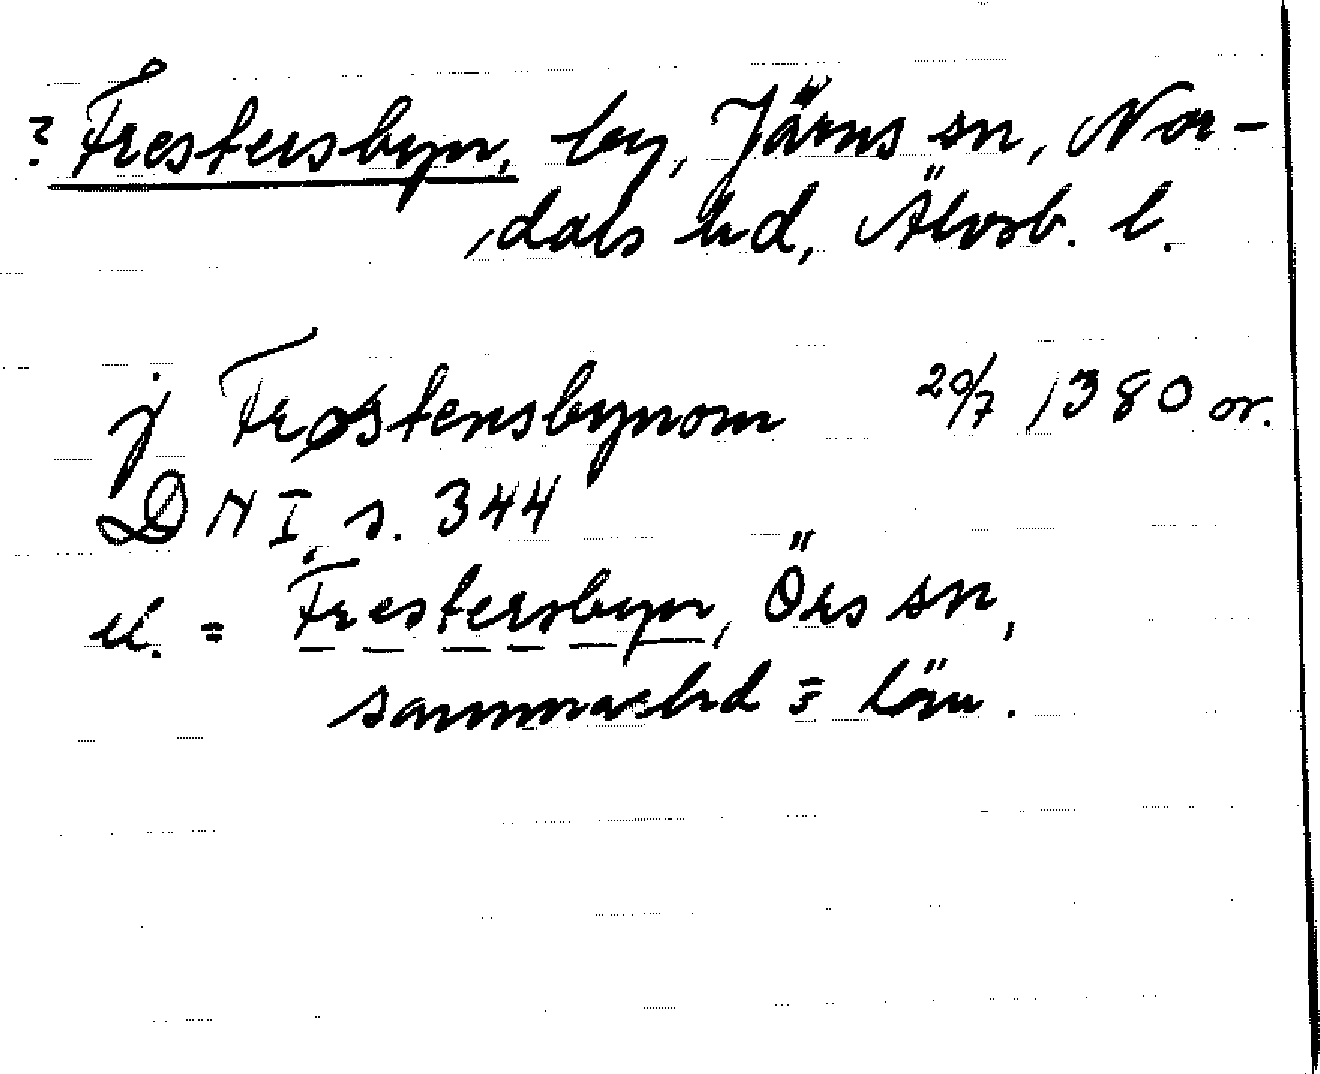 ? Frestersbyn, by, Järns sn, Nor-
dals hd, Älvsb. l.
j Frøstensbynom 20/7 1380 or.
DN I s. 344
el. = Frestersbyn, Örs sn,
samma hd = län.